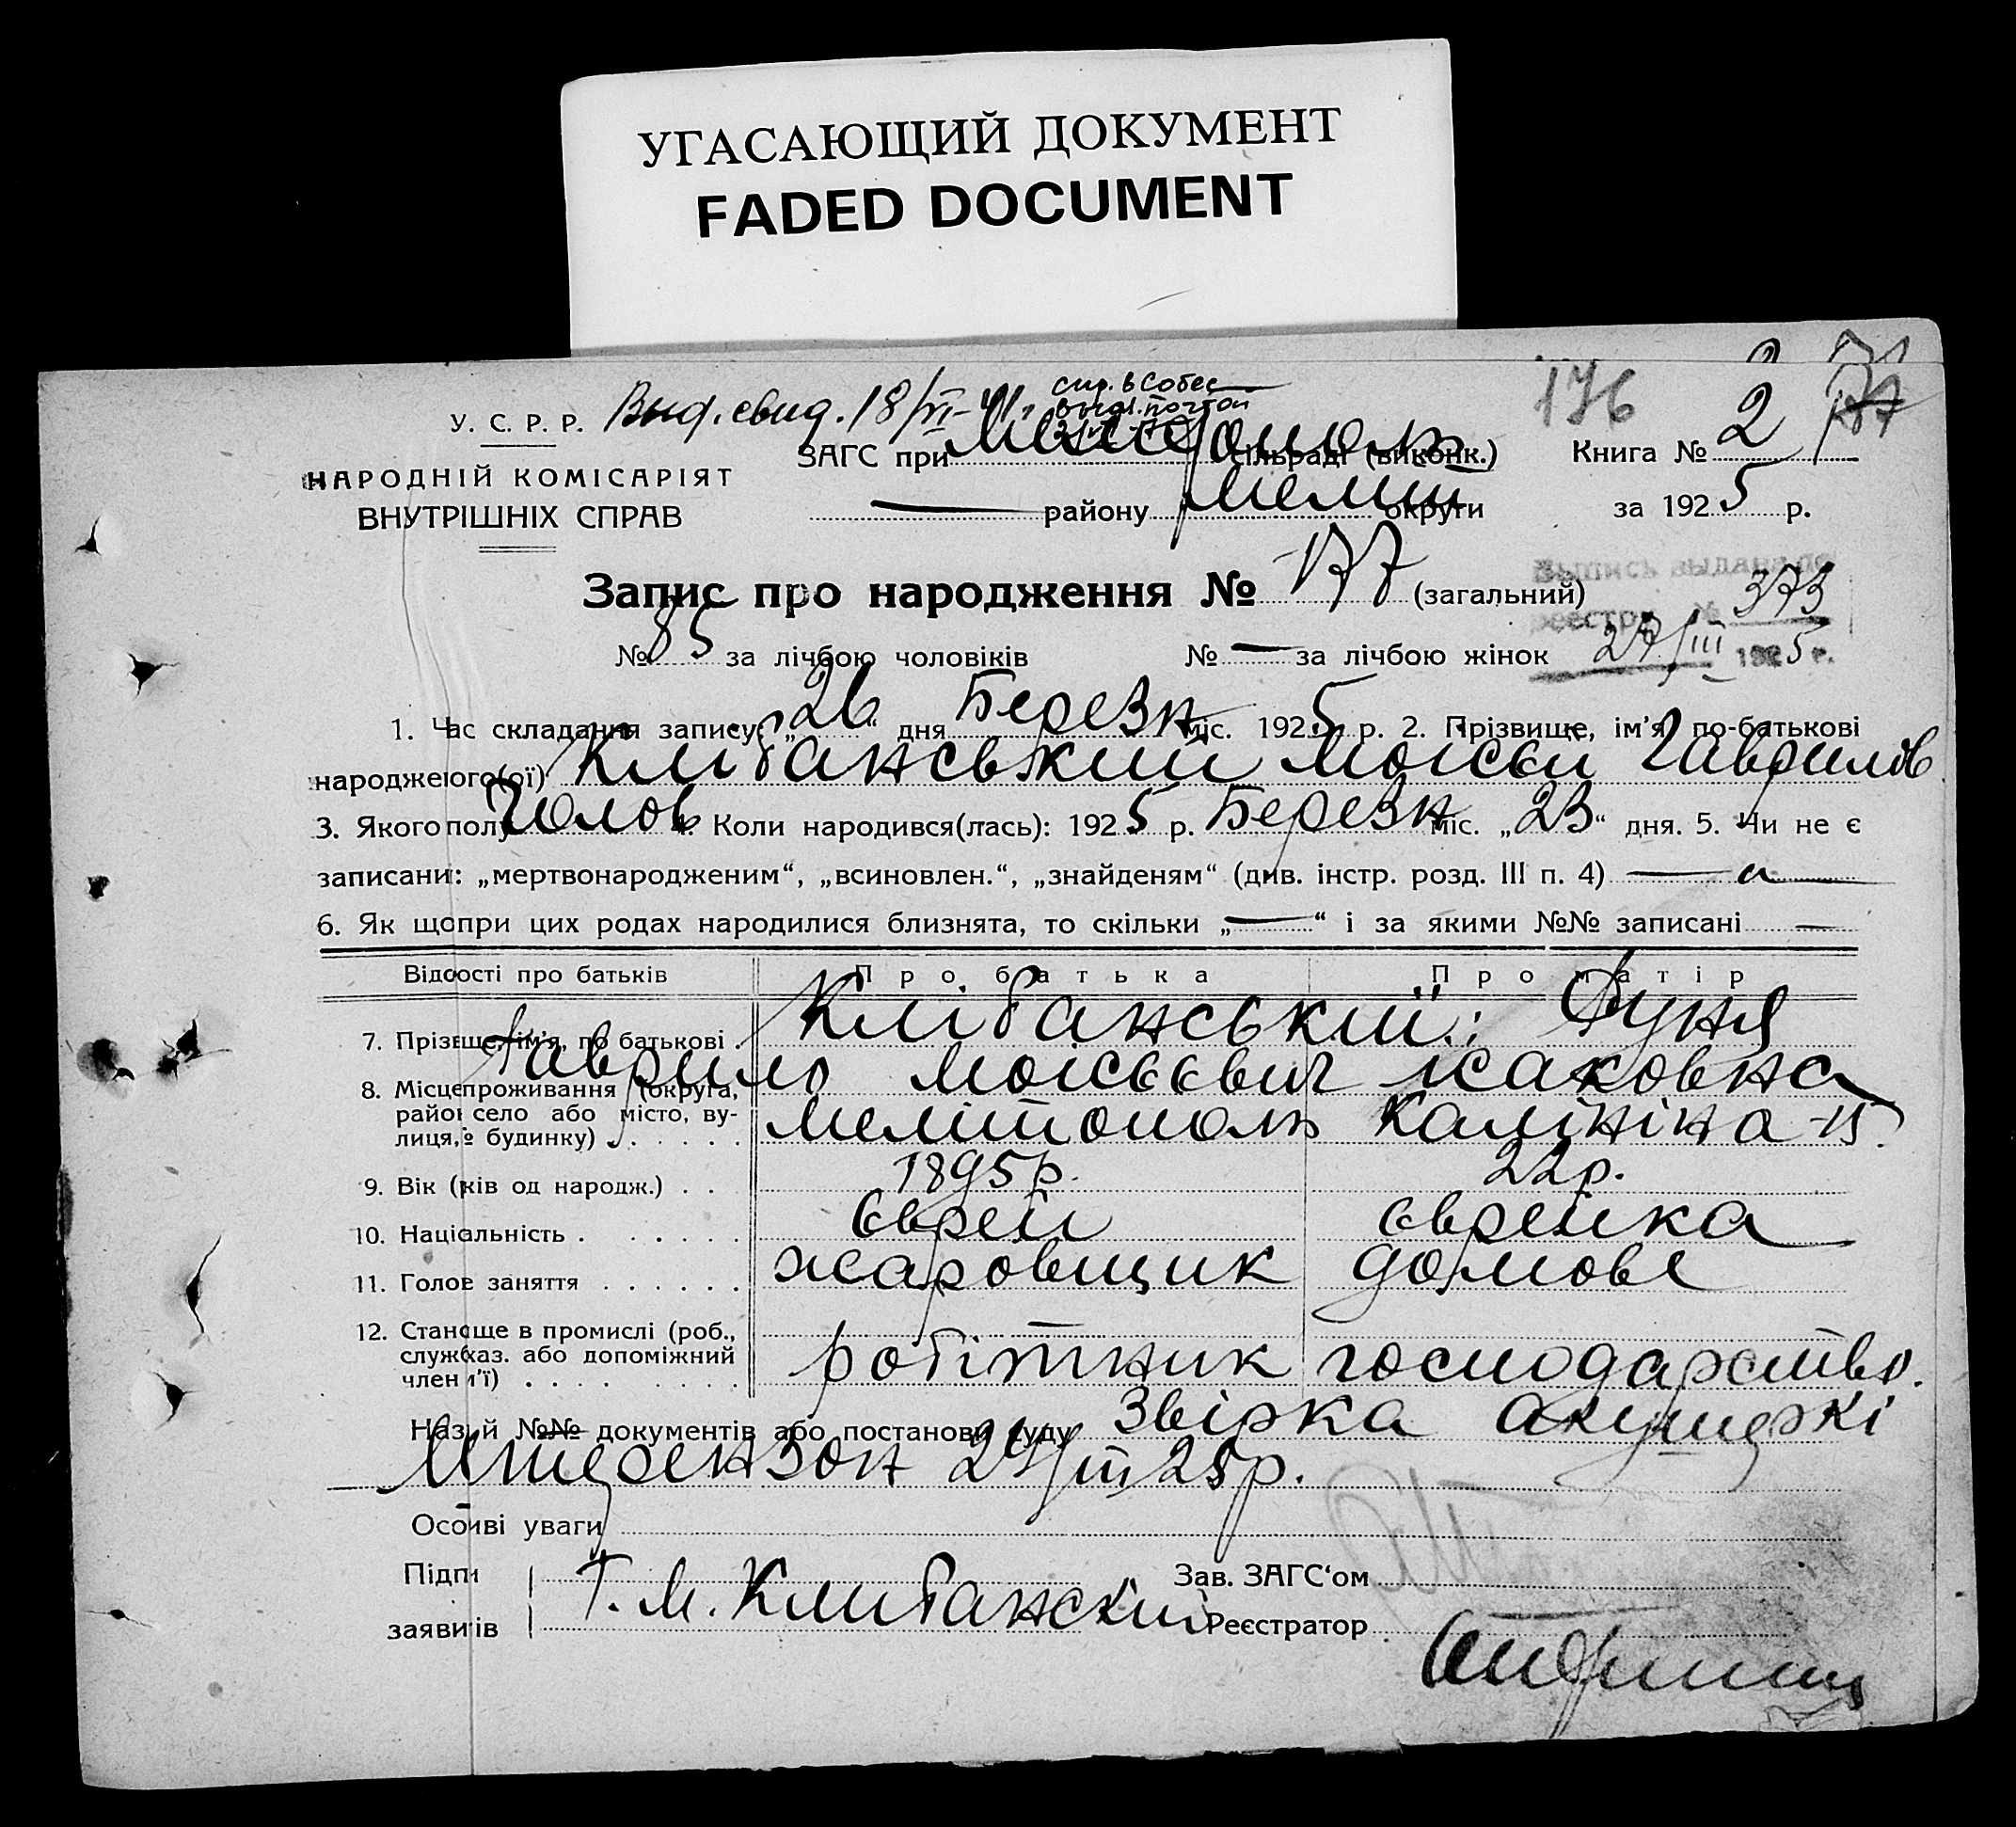 УГАСАЮЩИЙ ДОКУМЕНТ
FADED DOCUMENT
176 2 177
У. С. Р. Р. Выд. свид. 18/VI-41. спр. в Собес
выдл. почтой
НАРОДНІЙ КОМІСАРІЯТ
ВНУТРІШНІХ СПРАВ
ЗАГС при сільраді (виконк.) Книга № 2
— району Меліт округи за 1925 р.
Запис про народження № 177 (загальний)
Выпись выдана по
реестру № 373
27/III 1925 г.
№ 85 за лічбою чоловіків № — за лічбою жінок
1. Час складання запису: „26“ дня Березн міс. 1925 р. 2. Прізвище, ім'я, по-батькові
народженого(ої) Клібанський Моісєй Гаврилов
3. Якого полу Чолов 4. Коли народився(лась): 1925 р. Березн міс. „23“ дня. 5. Чи не є
записани: „мертвонародженим“, „всиновлен.“, „знайденям“ (див. інстр. розд. III п. 4) —
6. Як що при цих родах народилися близнята, то скільки „—“ і за якими №№ записані —
Відомості про батьків Про батька Про матір
7. Прізвище, ім'я, по батькові Клібанський: Фуня
Гаврило Моісєєвич Ісаковна
8. Місце проживання (округа,
район село або місто, ву-
лиця, № будинку) Мелітополь Калініна-15.
9. Вік (років од народж.) 1895 р. 22 р.
10. Національність Єврей Єврейка
11. Голов заняття жаровщик домове
12. Становще в промислі (роб.,
служб. каз. або допоміжний
член м'ї) робітник господарство.
Назв й №№ документів або постанови суду Звірка акушеркі
24/III 25 р.
Особиві уваги
Підпи
заявників Г. М. Клибанский
Зав. ЗАГС'ом
Реєстратор